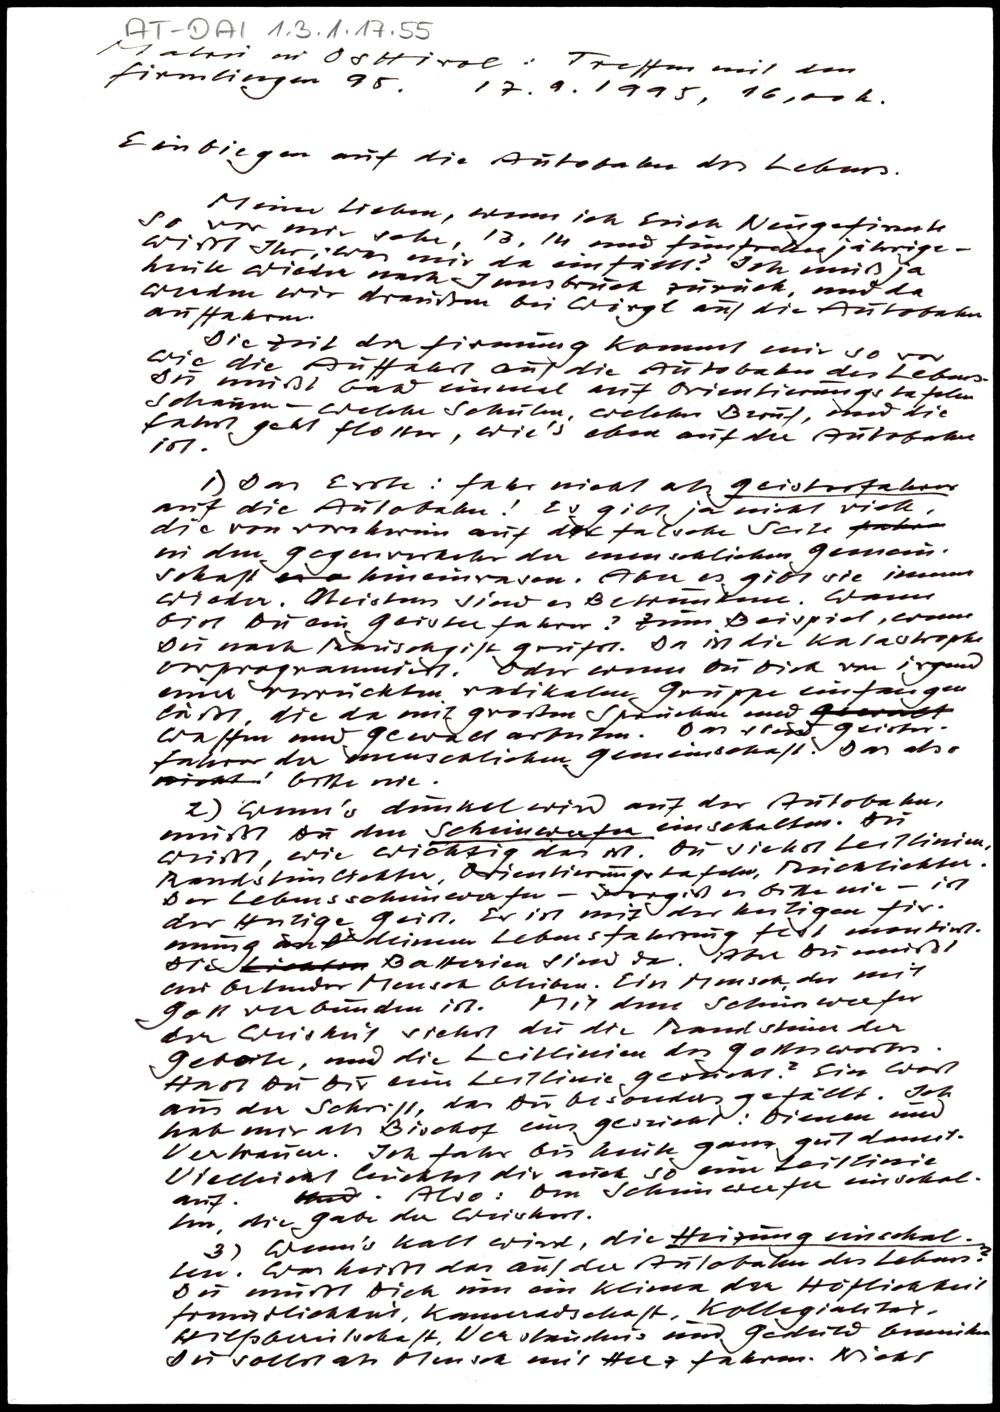 AT-DAI 1.3.1.17.55
Matrei in Osttirol: Treffen mit den
Firmlingen 95. 17.9.1995, 16,00 h.
Einbiegen auf die Autobahn des Lebens.
Meine Lieben, wenn ich Euch Neugefirmte
so vor mir sehe, 13, 14 und fünfzehnjährige -
wißt Ihr, was mir da einfällt? Ich muß ja
heute wieder nach Innsbruck zurück, und da
werden wir draußen bei Wörgl auf die Autobahn
auffahren.
Die Zeit der Firmung kommt mir so vor
wie die Auffahrt auf die Autobahn des Lebens.
Du mußt bald einmal auf Orientierungstafeln
schauen - welche Schulen, welcher Beruf, und die
Fahrt geht flotter, wie's eben auf der Autobahn
ist.
1) Das Erste: fahr nicht als Geisterfahrer
auf die Autobahn! Es gibt ja nicht viele,
die von vornherein auf der falsche Seite fahren
in den Gegenverkehr der menschlichen Gemein-
schaft hineinrasen. Aber es gibt sie immer
wieder. Meistens sind es Betrunkene. Wann
bist Du ein Geisterfahrer? Zum Beispiel, wenn
Du nach Rauschgift greifst. Da ist die Katastrophe
vorprogrammiert. Oder wenn Du Dich von irgend
einer verrückten, radikalen Gruppe einfangen
läßt, die da mit großen Sprüchen und Gewalt
Waffen und Gewalt arbeiten. Das sind Geister-
fahrer der menschlichen Gemeinschaft. Das also
nicht! bitte nie.
2) Wenn's dunkel wird auf der Autobahn,
mußt Du den Scheinwerfer einschalten. Du
weißt, wie wichtig das ist. Du siehst Leitlinien,
Randsteinlichter, Orientierungstafeln, Rücklichter.
Der Lebensscheinwerfer - vergiß es bitte nie - ist
der Heilige Geist. Er ist mit der heiligen Fir-
mung an deinem Lebensfahrzeug fest montiert.
Die Lichter Batterien sind da. Aber Du mußt
ein betender Mensch bleiben. Ein Mensch, der mit
Gott verbunden ist. Mit dem Scheinwerfer
der Weisheit siehst du die Randsteine der
Gebote, und die Leitlinien des Gotteswortes.
Hast Du Dir eine Leitlinie gesucht? Ein Wort
aus der Schrift, das Dir besonders gefällt. Ich
hab mir als Bischof eins gesucht: Dienen und
Vertrauen. Ich fahr bis heute ganz gut damit.
Vielleicht leuchtet dir auch so eine Leitlinie
auf. Und. Also: Den Scheinwerfer einschal-
ten, die Gabe der Weisheit.
3) Wenn's kalt wird, die Heizung einschal-
ten. Was heißt das auf der Autobahn des Lebens?
Du mußt Dich um ein Klima der Höflichkeit
Freundlichkeit, Kameradschaft, Kollegialität,
Hilfsbereitschaft, Verständnis und Geduld bemühen
Du sollst als Mensch mit Herz fahren. Nicht